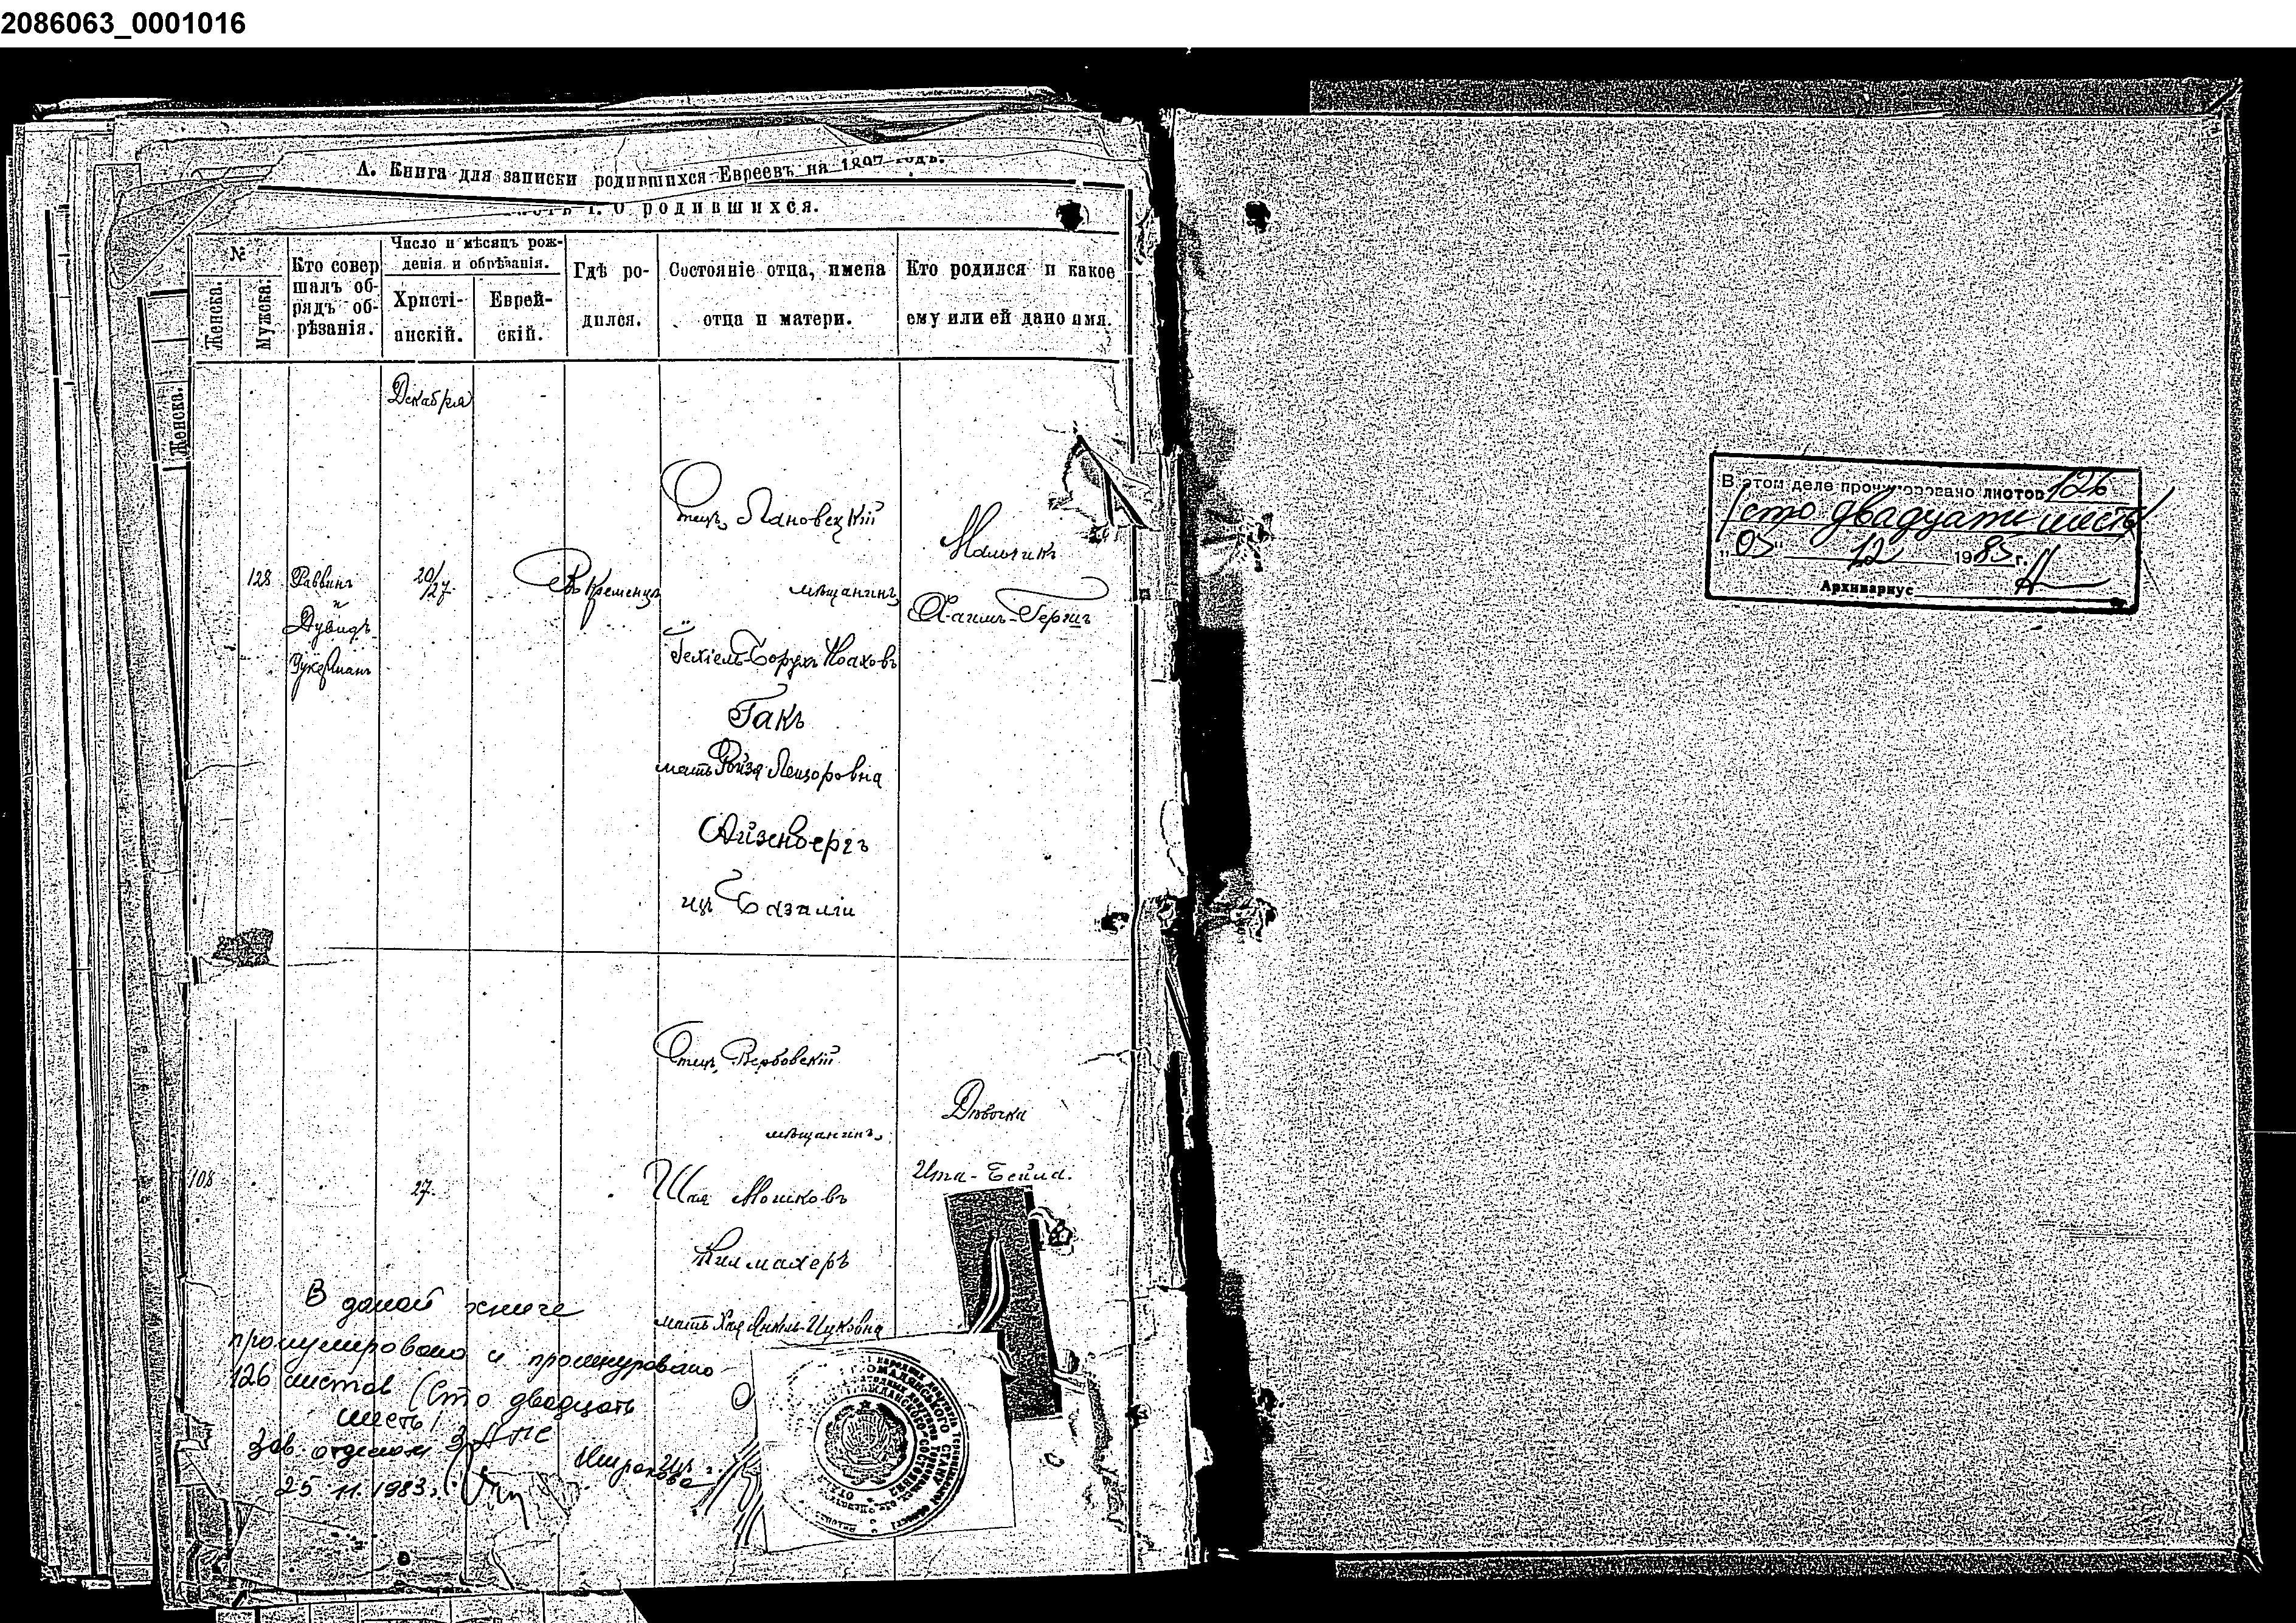 2086063_0001016
А. Книга для записки родившихся Евреевъ на 1897 годъ.
I. О родившихся.
№
Женска.
Мужска.
Кто совершалъ обрядъ обрѣзанія.
Число и мѣсяцъ рожденія и обрѣзанія.
Христіанскій.
Еврейскій.
Гдѣ родился.
Состояніе отца, имена отца и матери.
Кто родился и какое ему или ей дано имя.
Женска.
Декабря
128
Раввинъ
и
Дувидъ
Цукерманъ
20/27
Въ Кременцѣ
Отецъ Лановецкій
мѣщанинъ
Іехіель-Борухъ Ноаховъ
Гакъ
мать Ройзя Лейзоровна
Айзенбергъ
изъ Базаліи
Мальчикъ
Хаимъ-Гершъ
108
27
Отецъ Вербовскій
мѣщанинъ
Шая Мошковъ
мать Хая Янкель-Ицковна
Дѣвочка
Ита-Бейла.
В даной книге
пронумеровано и прошнуровано
126 листов (Сто двадцать
шесть)
Зав. отделом ЗАГС
25 11. 1983
В этом деле пронумеровано листов 126
(сто двадцать шесть)
"05" 12 1985 г.
Архивариус